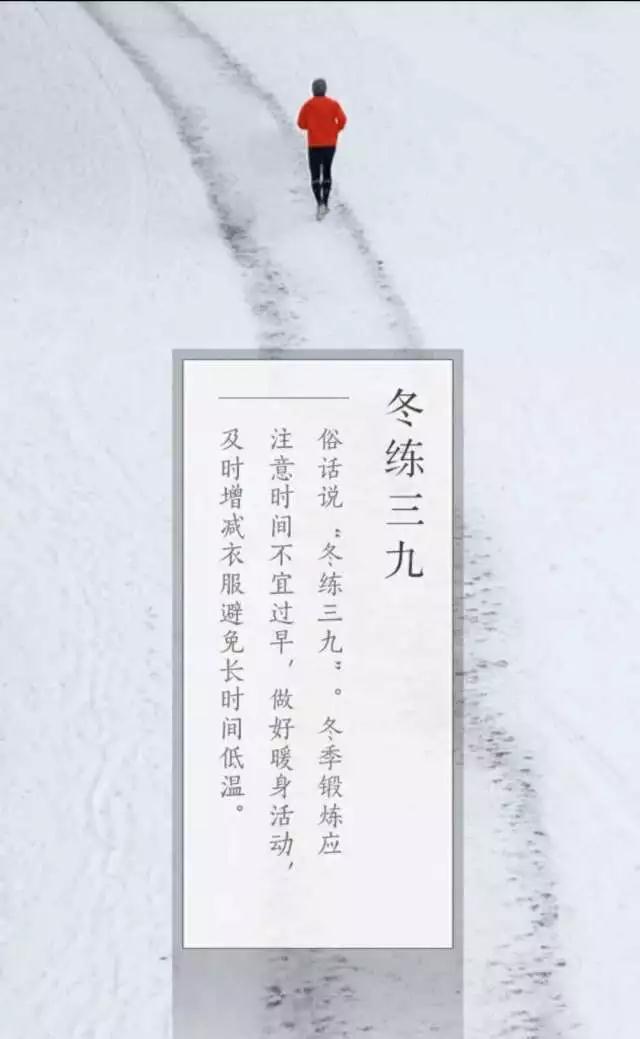 冬练三九
俗话说“冬练三九”。冬季锻炼应
注意时间不宜过早，做好暖身活动，
及时增减衣服避免长时间低温。